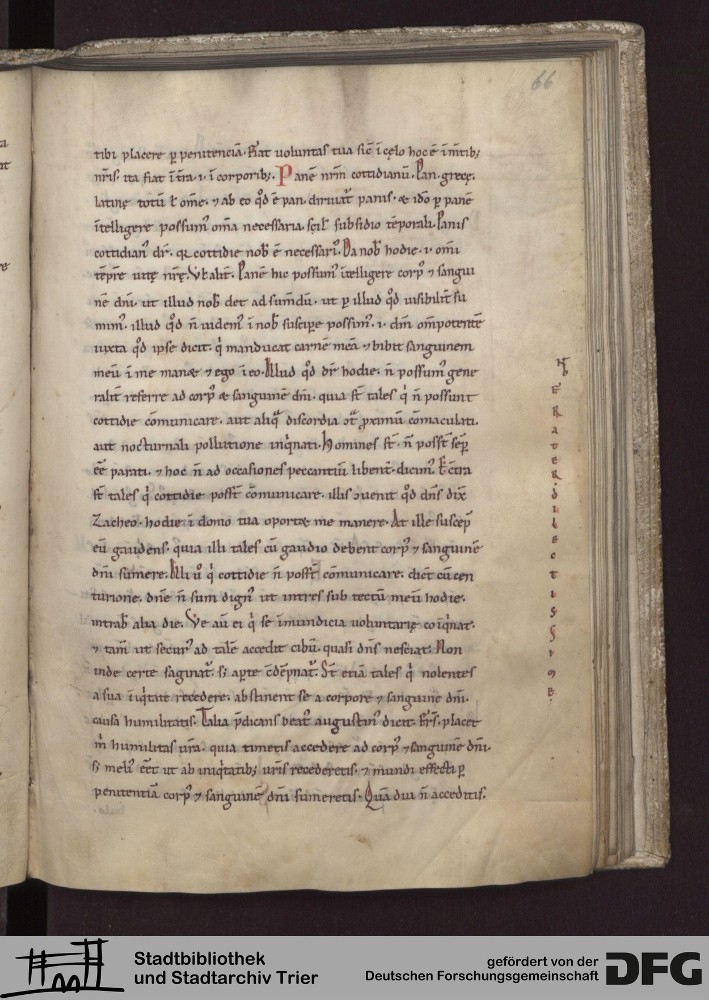 66
tibi placere ꝑ penitenciã. Fiat voluntas tua sic̄ ĩ cęlo hoc ē ĩ m̄tib;
nr̄is. ita fiat ĩ tr̄a .i. ĩ corporib;. Panē nrm̄ cottidianū. Pan. grecę.
latinę totū ł om̄e. ⁊ ab eo qđ ē pan. dirivat᷑ panis. & idō ꝑ panē
ĩtelligere possum᷒ om̄a necessaria. scil᷒ subsidio tēporali. Panis
cottidian᷒ dr̄. qꝛ cottidie nob̄ ē necessari᷒. Da nob̄ hodie .i. om̄i
tēpr̄e uitę nr̄ę. Vł alit̄. Panē hic possum᷒ ĩtelligere corp᷒ ⁊ sangui
nē dn̄i. ut illud nob̄ det ad sum̄dū. ut ꝑ illud qđ uisibilit̄ su
mim᷒. illud qđ n̄ uidem᷒ ĩ nob̄ suscipe possim᷒ .i. dn̄m om̄potentē
iuxta qđ ipse dicit. q̇ manducat carnē meā ⁊ bibit sanguinem
meū ĩ me man& ⁊ ego ĩ eo. Illud qđ dr̄ hodie. n̄ possum᷒ gene
ralit̄ referre ad corp᷒ & sanguinē dn̄i. quia st̄ tales q̇ n̄ possunt
cottidie cōmunicare. aut aliq̄ discordia ōt᷑ ꝓximū cōmaculati.
aut nocturnali pollutione inq̇nati. Homines st̄. n̄ poss̄t sēꝑ
ēē parati. ⁊ hoc n̄ ad occasiones peccantiū libent̄. dicim᷒. E c̄tra
st̄ tales q̇ cottidie poss̄t cōmunicare. illis ꝯuenit qđ dn̄s dix̄
Zacheo. hodie ĩ domo tua oport& me manere. At ille suscep̄
eū gaudens. quia illi tales cū gaudio debent corp᷒ ⁊ sanguinē
dn̄i sumere. Illi ū q̇ cottidie n̄ poss̄t cōmunicare. dic̄t cū cen
turione. dn̄e n̄ sum dign᷒ ut intres sub tectū meū hodie.
intrab᷒ alia die. Ve aū ei q̇ se ĩmundicia voluntarię coiq̇nat.
⁊ tam̄ ut secur᷒ ad talē accedit cibū. quasi dn̄s nesciat. Non
inde certe saginat᷑. s; aꝑte ꝯdēpnat᷑. St̄ etiā tales q̇ nolentes
a sua ĩiq̇tate recedere. abstinent se a corpore ⁊ sanguine dn̄i.
causa humilitatis. Talia p̄dicans beat᷒ augustin᷒ dicit. Fr̄s. placet
m̄ humilitas ur̄a. quia timetis accedere ad corp᷒ ⁊ sanguinē dn̄i.
s; meli᷒ eēt ut ab iniq̇tatib; ur̄is recederetis. ⁊ mundi effecti ꝑ
penitentiā corp᷒ ⁊ sanguinē dn̄i sumeretis. Quādiu n̄ acceditis.
Stadtbibliothek
und Stadtarchiv Trier
gefördert von der
Deutschen Forschungsgemeinschaft
DFG